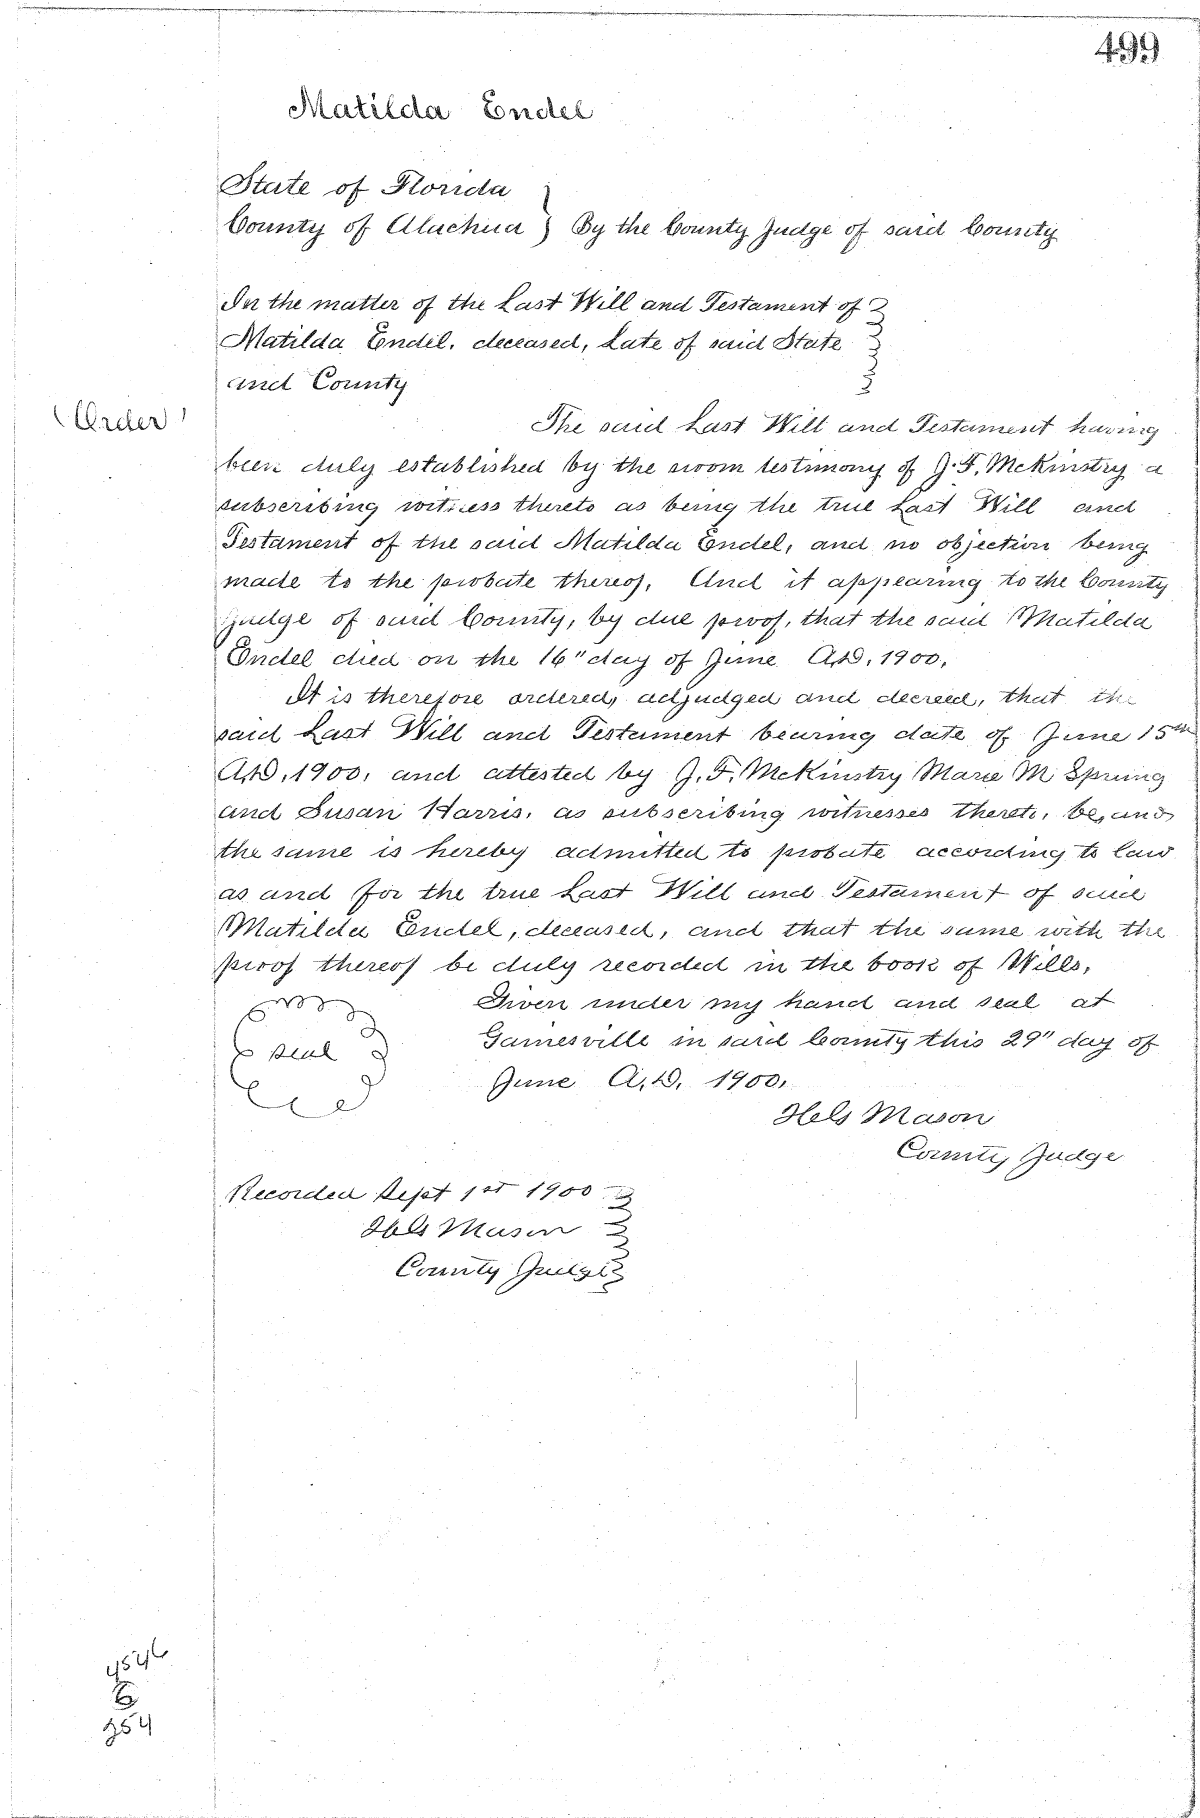 499
Matilda Endel
State of Florida
County of Alachua } By the County Judge of said County
In the matter of the Last Will and Testament of
Matilda Endel, deceased, Late of said State
and County
(Order)
The said Last Will and Testament having
been duly established by the sworn testimony of J. F. McKinstry a
subscribing witness thereto as being the true Last Will and
Testament of the said Matilda Endel, and no objection being
made to the probate thereof, And it appearing to the County
Judge of said County, by due proof, that the said Matilda
Endel died on the 16" day of June A.D. 1900,
It is therefore ordered, adjudged and decreed, that the
said Last Will and Testament bearing date of June 15th
A.D. 1900, and attested by J. F. McKinstry Marie M Spring
and Susan Harris, as subscribing witnesses thereto, be, and
the same is hereby admitted to probate according to law
as and for the true Last Will and Testament of said
Matilda Endel, deceased, and that the same with the
proof thereof be duly recorded in the book of Wills,
Given under my hand and seal at
seal
Gainesville in said County this 29" day of
June A.D. 1900,
Mason
County Judge
Recorded Sept 1st 1900
Mason
County Judge
4546
954